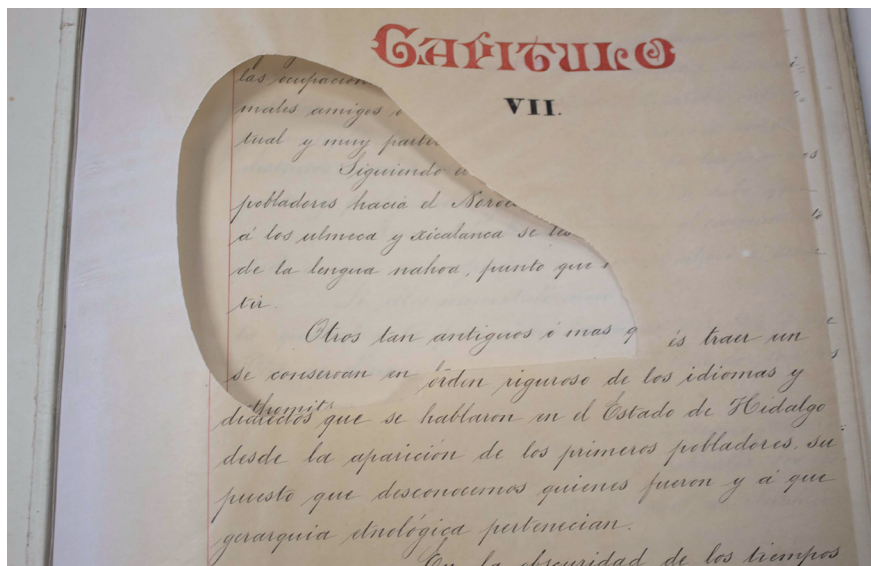 CAPITULO
VII.
las ocupacion
males amigos
tual y muy
Siguiendo
pobladores hacia el
á los ulmeca y xicalanca se
de la lengua nahoa, punto que
tir.
Otros tan antiguos ó mas q is traer un
se conservan en órden riguroso de los idiomas y
dialectos que se hablaron en el Estado de Hidalgo
desde la aparicion de los primeros pobladores, su
puesto que desconocemos quienes fueron y á que
gerarquia etnológica pertenecian.
En la obscuridad de los tiempos